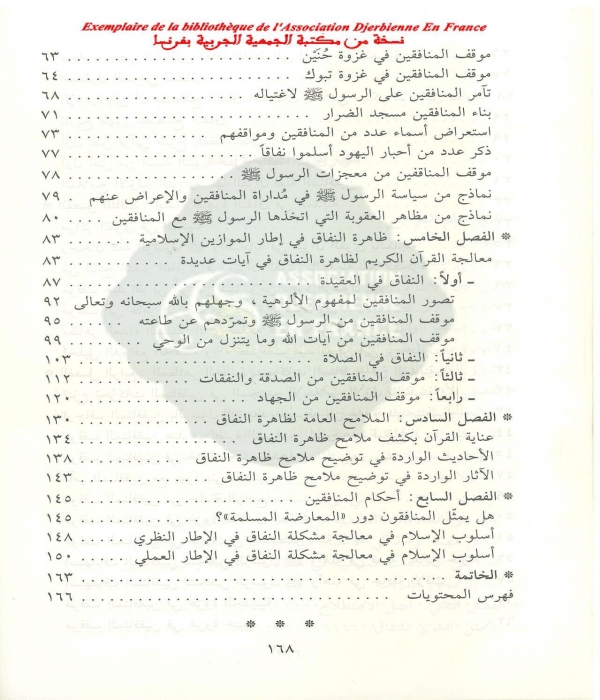 Exemplaire de la bibliothèque de l'Association Djerbienne En France
نسخة من مكتبة الجمعية الجربية بفرنسا
موقف المنافقين في غزوة حُنَيْن . . . . . . . . . . . . . . . . . . . . . . ٦٣
موقف المنافقين في غزوة تبوك . . . . . . . . . . . . . . . . . . . . . . ٦٤
تآمر المنافقين على الرسول ﷺ لاغتياله . . . . . . . . . . . . . . . . ٦٨
بناء المنافقين مسجد الضرار . . . . . . . . . . . . . . . . . . . . . . ٧١
استعراض أسماء عدد من المنافقين ومواقفهم . . . . . . . . . . . . . ٧٣
ذكر عدد من أحبار اليهود أسلموا نفاقاً . . . . . . . . . . . . . . . . ٧٧
موقف المناقفين من معجزات الرسول ﷺ . . . . . . . . . . . . . . . ٧٨
نماذج من سياسة الرسول ﷺ في مُداراة المنافقين والإعراض عنهم . ٧٩
نماذج من مظاهر العقوبة التي اتخذها الرسول ﷺ مع المنافقين . . . . ٨٠
* الفصل الخامس: ظاهرة النفاق في إطار الموازين الإسلامية . . . . . . . ٨٣
معالجة القرآن الكريم لظاهرة النفاق في آيات عديدة . . . . . . . . ٨٣
ـ أولاً: النفاق في العقيدة . . . . . . . . . . . . . . . . . . . . . . ٨٧
تصور المنافقين لمفهوم الألوهية ، وجهلهم بالله سبحانه وتعالى ٩٢
موقف المنافقين من الرسول ﷺ وتمرّدهم عن طاعته . . . . . ٩٥
موقف المنافقين من آيات الله وما يتنزل من الوحي . . . . . . ٩٩
ـ ثانياً: النفاق في الصلاة . . . . . . . . . . . . . . . . . . . . . ١٠٣
ـ ثالثاً: موقف المنافقين من الصدقة والنفقات . . . . . . . . . . ١١٢
ـ رابعاً: موقف المنافقين من الجهاد . . . . . . . . . . . . . . . ١٢٠
* الفصل السادس: الملامح العامة لظاهرة النفاق . . . . . . . . . . . . ١٣٠
عناية القرآن بكشف ملامح ظاهرة النفاق . . . . . . . . . . . . . ١٣٤
الأحاديث الواردة في توضيح ملامح ظاهرة النفاق . . . . . . . . . ١٣٨
الآثار الواردة في توضيح ملامح ظاهرة النفاق . . . . . . . . . . . ١٤٣
* الفصل السابع: أحكام المنافقين . . . . . . . . . . . . . . . . . . . ١٤٥
هل يمثّل المنافقون دور «المعارضة المسلمة»؟ . . . . . . . . . . . ١٤٥
أسلوب الإسلام في معالجة مشكلة النفاق في الإطار النظري . . . . . ١٤٨
أسلوب الإسلام في معالجة مشكلة النفاق في الإطار العملي . . . . . ١٥٠
* الخاتمة . . . . . . . . . . . . . . . . . . . . . . . . . . . . . . . ١٦٣
فهرس المحتويات . . . . . . . . . . . . . . . . . . . . . . . . . . . . ١٦٦
* * *
١٦٨
ASSOCIATION